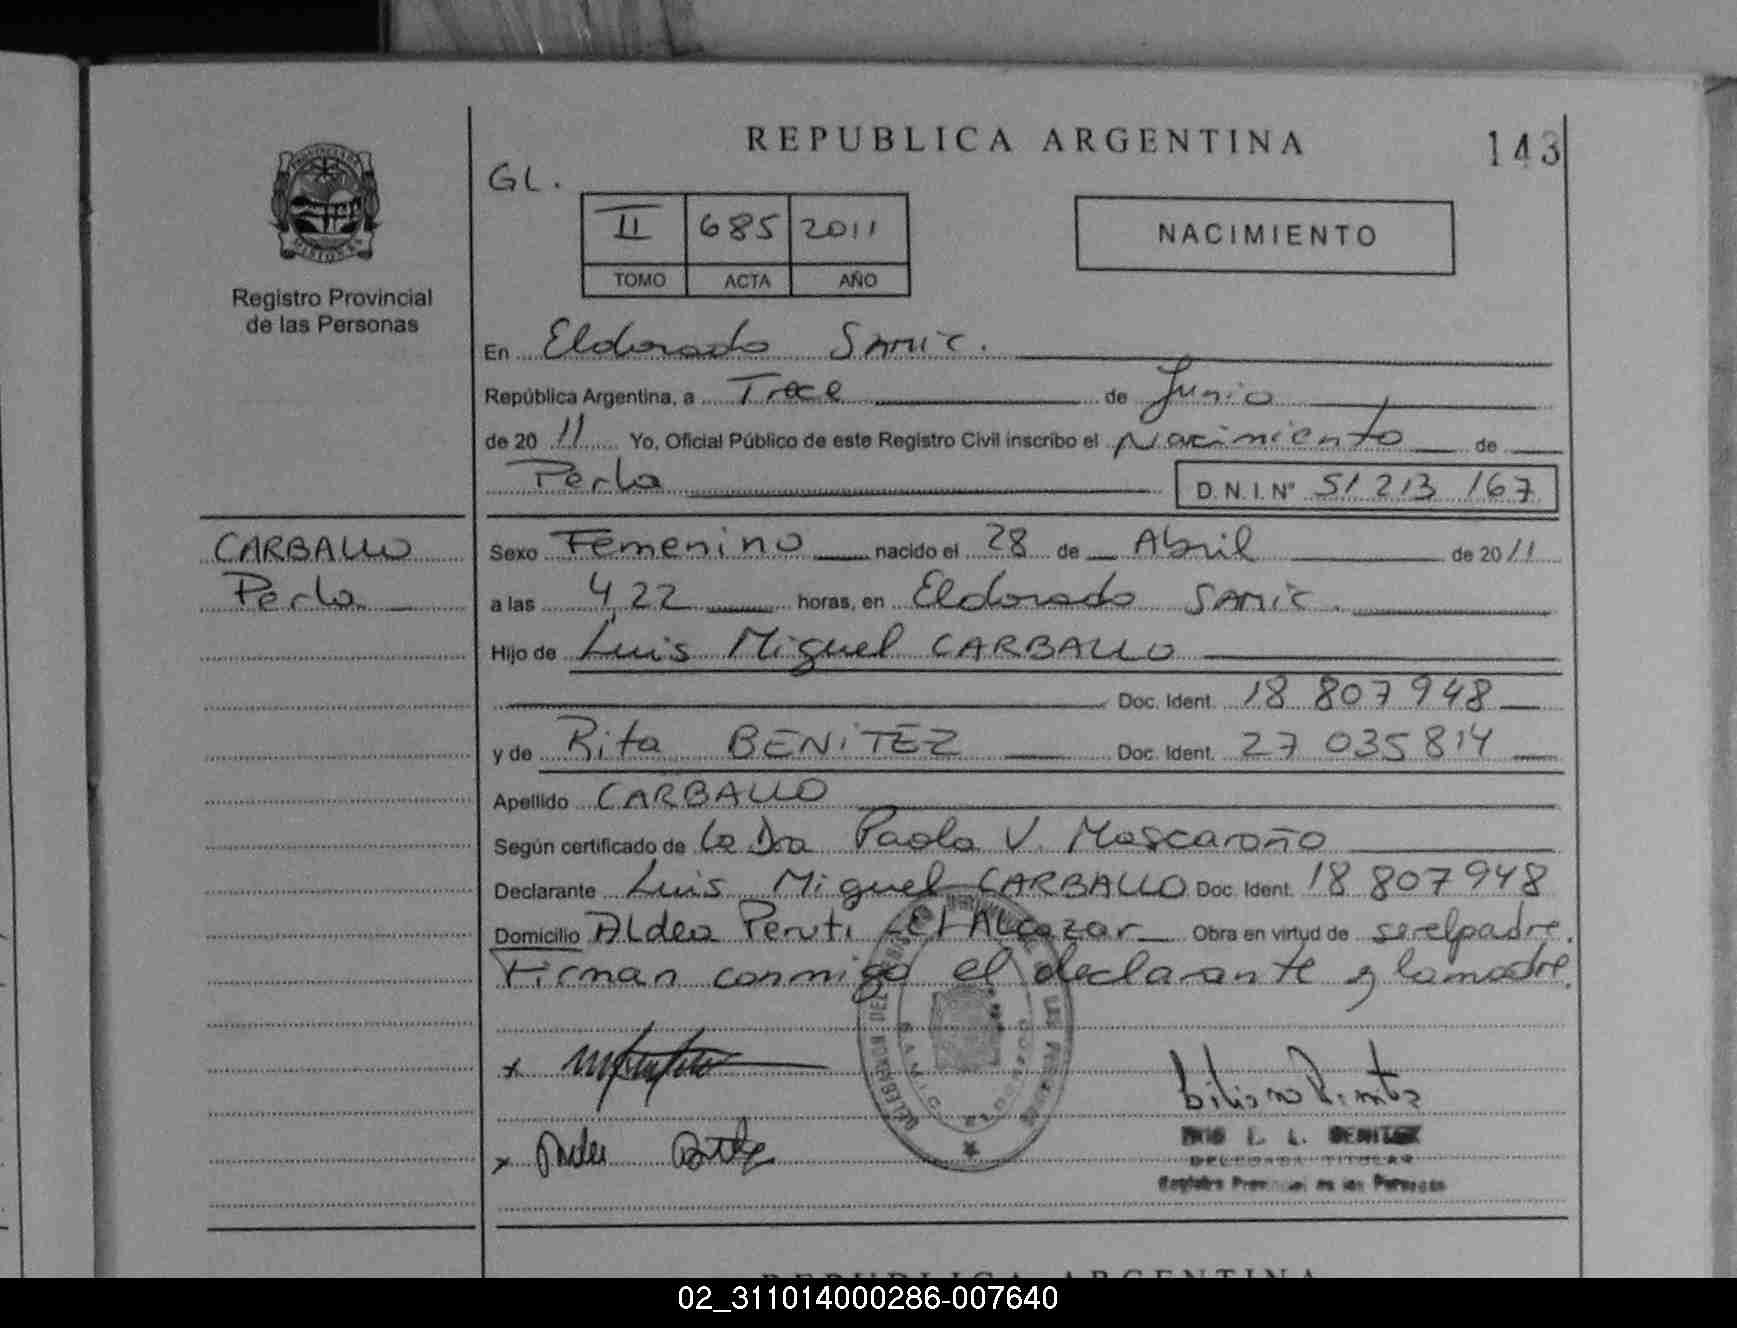 REPUBLICA ARGENTINA
143
GL.
II 685 2011
TOMO ACTA AÑO
NACIMIENTO
Registro Provincial
de las Personas
En Eldorado SAMIC.
República Argentina, a Trece de Junio
de 20 11 Yo, Oficial Público de este Registro Civil inscribo el Nacimiento de
Perla D.N.I. N° 51 213 167
CARBALLO
Perla
Sexo Femenino nacido el 28 de Abril de 2011
a las 4,22 horas, en Eldorado SAMIC.
Hijo de Luis Miguel CARBALLO
Doc. Ident. 18 807 948
y de Rita BENITEZ Doc. Ident. 27 035 814
Apellido CARBALLO
Según certificado de La Dra Paola V. Mascaroño
Declarante Luis Miguel CARBALLO Doc. Ident. 18 807 948
Domicilio Aldea Peruti El Alcazar Obra en virtud de ser el padre.
Firman conmigo el declarante y la madre.
BENITEZ
DELEGADA TITULAR
Registro Provincial de las Personas
REPUBLICA ARGENTINA
02_311014000286-007640